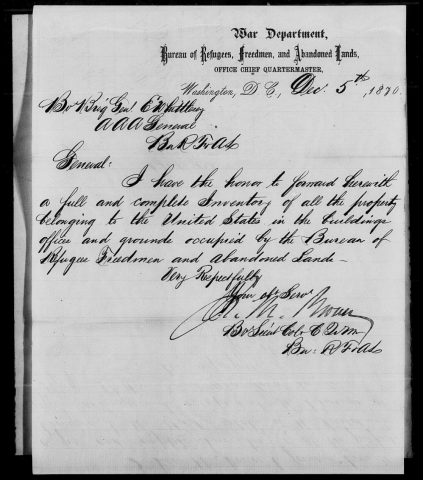 War Department,
Bureau of Refugees, Freedmen, and Abandoned Lands,
OFFICE CHIEF QUARTERMASTER,
Washington, D. C., Dec. 5th, 1870.
Bv Brig Genl E Whittlesey
A A A General
Bu R F & A L
General:
I have the honor to forward herewith
a full and complete Inventory of all the property
belonging to the United States in the buildings
offices and grounds occupied by the Bureau of
Refugees Freedmen and Abandoned Lands -
Very Respectfully
Your obt Servt
J. M. Moore
Bv Lieut Col & C Q M
Bu: R F & A L